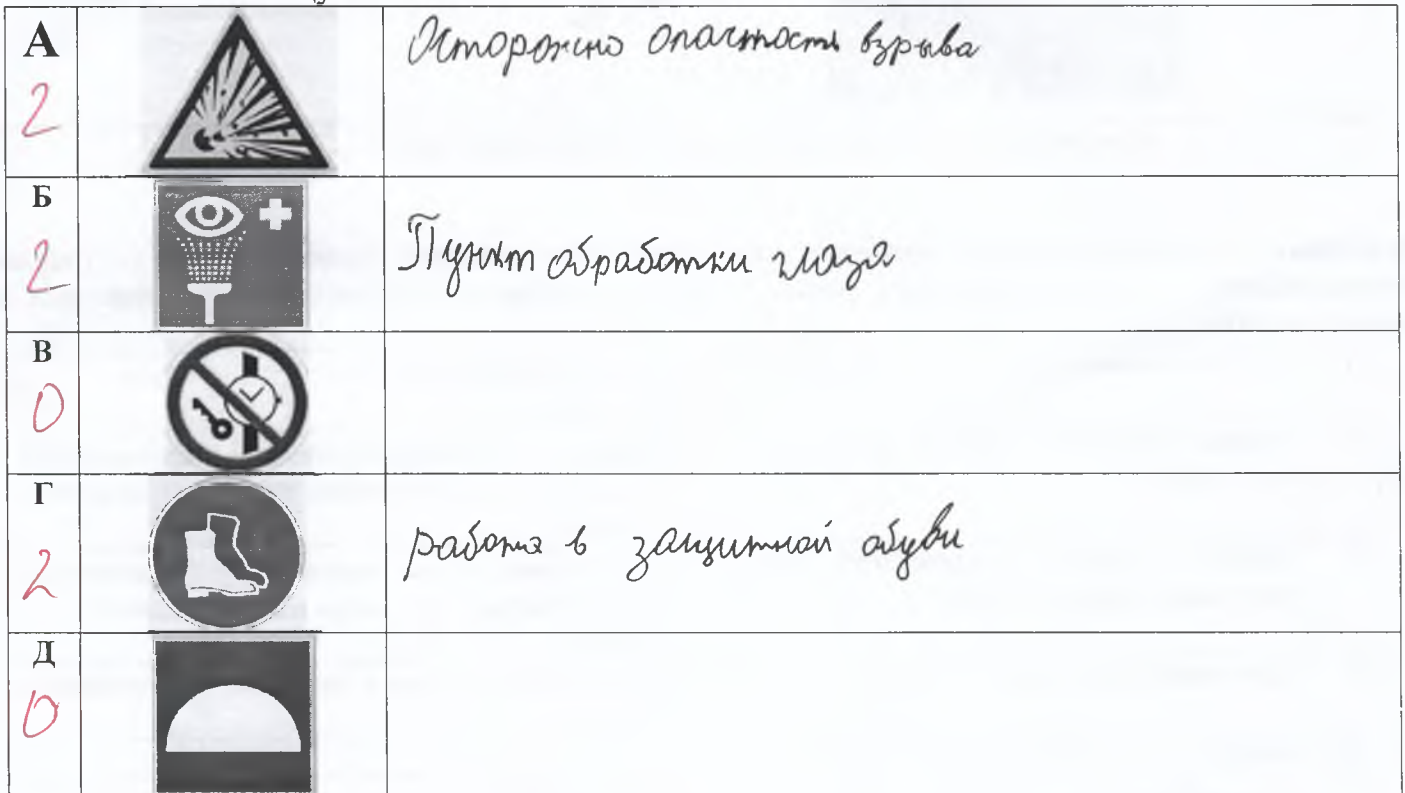 А
2
Осторожно опасность взрыва
Б
2
Пункт обработки глаза
В
0
Г
2
работа в защитной обуви
Д
0